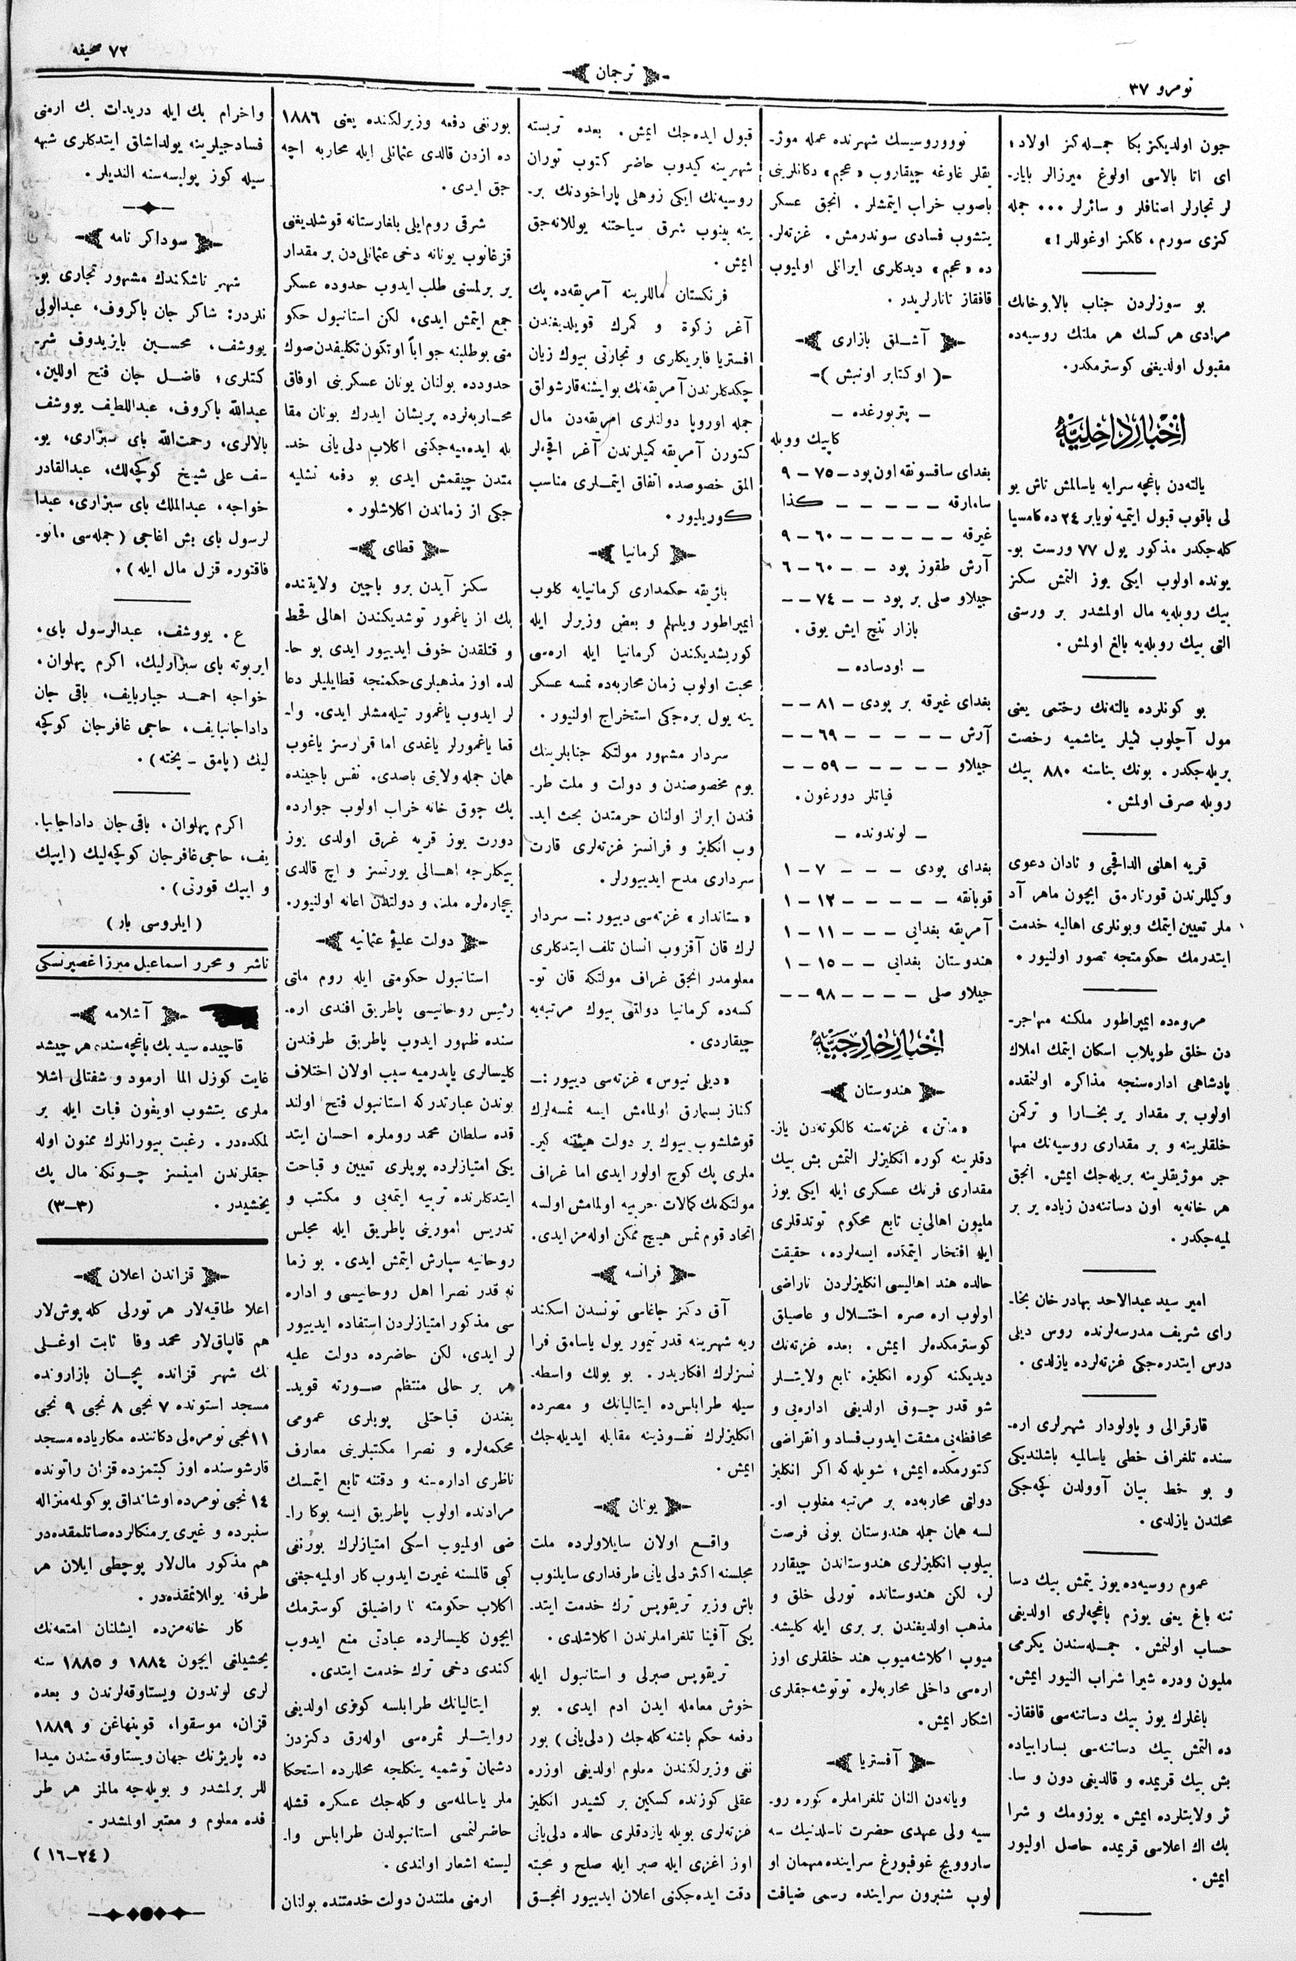 نومرو ٣٧
ترجمان
٧٢ صحیفه
جون اولدیکز بکا جمله‌کز اولاد؛
ای اتا بالاسی اولوغ میرزالر بایلر
لر تجارلر اصنافلر و سائرلر ... جمله
کزی سورم، کلکز اوغوللر!»
بو سوزلردن جناب بالابوخانك
مرادی هر کسك هر ملتك روسیه‌ده
مقبول اولدیغنی کوسترمکدر.
اخبار داخلیه
یالته‌دن باغچه سرایه یاسالمش تاش یو
لی باقوب قبول ایتمیه نویابر ٢٤ ده کامسیا
کله‌جکدر مذکور یول ٧٧ ورست بو-
یونده اولوب ایکی یوز التمش سکز
بیك روبله‌یه مال اولمشدر بر ورستی
التی بیك روبله‌یه بالغ اولمش.
بو کونلرده یالته‌نك رختمی یعنی
مول آچلوب کمیلر یناشمیه رخصت
بریله‌جکدر. بونك بناسنه ٨٨٠ بیك
روبله صرف اولمش.
قریه اهلنی الداقچی و نادان دعوی
وکیللرندن قورتارمق ایچون ماهر آد
ملر تعیین ایتمك وبونلری اهالیه خدمت
ایتدرمك حکومتجه تصور اولنیور.
مروه‌ده ایمپراطور ملکنه مهاجر-
دن خلق طوپلاب اسکان ایتمك املاك
پادشاهی اداره‌سنجه مذاکره اولنمقده
اولوب بر مقدار یر بخارا و ترکمن
خلقلرینه و بر مقداری روسیه‌نك مها
جر موژیقلرینه بریله‌جك ایمش. انجق
هر خانه‌یه اون دساتنه‌دن زیاده یر بر
لمیه‌جکدر.
امیر سید عبدالاحد بهادر خان بخا-
رای شریف مدرسه‌لرنده روس دیلی
درس ایتدره‌جکی غزته‌لرده یازلدی.
قارقرالی و پاولودار شهرلری اره-
سنده تلغراف خطی یاسالمیه باشلندیکی
و بو خط بیان آوولدن کچه‌جکی
محلندن یازلدی.
عموم روسیه‌ده یوز یتمش بیك دسا
تنه باغ یعنی یوزم باغچه‌لری اولدیغی
حساب اولنمش. جمله‌سندن یکرمی
ملیون ودره شیرا شراب النیور ایمش.
باغلرك یوز بیك دساتنه‌سی قافقاز-
ده التمش بیك دساتنه‌سی بسارابیاده
بش بیك قریمده و قالدیغی دون و سا-
ئر ولایتلرده ایمش. یوزومك و شرا
بك اك اعلاسی قریمده حاصل اولیور
ایمش.
نووروسیسك شهرنده عمله موژ-
یقلر غاوغه چیقاروب «عجم» دکانلرینی
باصوب خراب ایتمشلر. انجق عسکر
یتشوب فسادی سوندرمش. غزته‌لر-
ده «عجم» دیدکلری ایرانلی اولمیوب
قافقاز تاتارلریدر.
آشلق بازاری
(اوکتابر اونبش)
پتربورغده
کاپیك ووبله
بغدای ساقسونقه اون پود - ٧٥ - ٩
سامارقه - - - - - کذا
غیرقه - - - - - ٦٠ - ٩
آرش طقوز پود - - ٦٠ - ٦
جیلاو صلی بر پود - - ٧٤ - -
بازار تنچ ایش یوق.
اودساده
بغدای غیرقه بر پودی - ٨١ - -
آرش - - - - - ٦٩ - -
جیلاو - - - - - ٥٩ - -
قیاتلر دورغون.
لوندونده
بغدای پودی - - - ٧ - ١
قوبانقه - - - - ١٢ - ١
آمریقه بغدایی - - - ١١ - ١
هندوستان بغدایی - - ١٥ - ١
جیلاو صلی - - - - ٩٨ - -
اخبار خارجیه
هندوستان
«متن» غزته‌سنه کالکوته‌دن یاز-
دقلرینه کوره انکلیزلر التمش بش بیك
مقداری فرنك عسکری ایله ایکی یوز
ملیون اهالی‌نی تابع محکوم توتدقلری
ایله افتخار ایتمکده ایسه‌لرده، حقیقت
حالده هند اهالیسی انکلیزلردن ناراضی
اولوب اره صره اختلال و عاصیلق
کوسترمکده‌لر ایمش. بعده غزته‌نك
دیدیکنه کوره انکلیزه تابع ولایتلر
شو قدر چوق اولدیغی اداره‌یی و
محافظه‌یی مشقت ایدوب فساد و انقراضی
کتورمکده ایمش؛ شویله‌که اکر انکلیز
دولتی محاربه‌ده بر مرتبه مغلوب او-
لسه همان جمله هندوستان بونی فرصت
بیلوب انکلیزلری هندوستاندن چیقارر
لر، لکن هندوستانده تورلی خلق و
مذهب اولدیغندن بر بری ایله کلیشه-
میوب اکلاشه‌میوب هند خلقلری اوز
اره‌سی داخلی محاربه‌لره توتوشه‌جقلری
اشکار ایمش.
آفستریا
ویانه‌دن النان تلغراملره کوره رو-
سیه ولی عهدی حضرت ناسلدنیك سه
سارویچ غوفبورغ سراینده میهمان او
لوب شنبرون سراینده رسمی ضیافت
قبول ایده‌جك ایمش. بعده تریسته
شهرینه کیدوب حاضر کتوب توران
روسیه‌نك ایکی زرهلی پاراخودنك بر-
ینه بینوب شرق سیاحتنه یوللانه‌جق
ایمش.
فرنکستان ماللرینه آمریقه‌ده پك
آغر زکوة و کمرك قویلدیغندن
افستریا فابریکلری و تجارتی بیوك زیان
چکدکلرندن آمریقه‌نك بو ایشنه قارشولق
جمله اوروپا دولتلری امریقه‌دن مال
کتورن آمریقه کمیلرندن آغر اقچه‌لر
المق خصوصده اتفاق ایتملری مناسب
کوریلیور.
کرمانیا
بلژیقه حکمداری کرمانیایه کلوب
ایمپراطور ویلهلم و بعض وزیرلر ایله
کوریشدیکندن کرمانیا ایله اره‌سی
محبت اولوب زمان محاربه‌ده نمسه عسکر
ینه یول بره‌جکی استخراج اولنیور.
سردار مشهور مولتکه جنابلرینك
یوم مخصوصندن و دولت و ملت طر-
فندن ابراز اولنان حرمتدن بحث اید-
وب انکلیز و فرانسز غزته‌لری قارت
سرداری مدح ایدییورلر.
«ستاندار» غزته‌سی دییور: - سردار
لرك قان آقزوب انسان تلف ایتدکلری
معلومدر انجق غراف مولتکه قان تو-
کسه‌ده کرمانیا دولتنی بیوك مرتبه‌یه
چیقاردی.
«دیلی نیوس» غزته‌سی دییور: -
کناز بسمارق اولمامش ایسه نمسه‌لرك
قوشلشوب بیوك بر دولت هیئتنه کیر-
ملری پك کوچ اولور ایدی اما غراف
مولتکه‌نك کمالات حربیه اولمامش اولسه
اتحاد قوم نمس هیچ ممکن اوله‌مز ایدی.
فرانسه
آق دکز جاغاسی تونسدن اسکند
ریه شهرینه قدر تیمور یول یاسامق فرا
نسزلرك افکاریدر. بو یولك واسطه-
سیله طرابلس‌ده ایتالیانك و مصرده
انکلیزلرك نفوذینه مقابله ایدیله‌جك
ایمش.
یونان
واقع اولان سایلاولرده ملت
مجلسنه اکثر دلی‌یانی طرفداری سایلنوب
باش وزیر تریقوپس ترك خدمت ایتد-
یکی آفینا تلغراملرندن اکلاشلدی.
تریقوپس صبرلی و استانبول ایله
خوش معامله ایدن ادم ایدی. بو
دفعه حکم باشنه کله‌جك (دلی‌یانی) بور
ننی وزیرلکندن معلوم اولدیغی اوزره
عقلی کوزنده کسکین بر کشیدر انکلیز
غزته‌لری بویله یازدقلری حالده دلی‌یانی
اوز اغزی ایله صبر ایله صلح و محبته
دقت ایده‌جکنی اعلان ایدییور انجق
بورنغی دفعه وزیرلکنده یعنی ١٨٨٦
ده ازدن قالدی عثمانلی ایله محاربه اچه
جق ایدی.
شرقی روم‌ایلی بلغارستانه قوشلدیغی
قزغانوب یونانه دخی عثمانلی‌دن بر مقدار
یر برلمسنی طلب ایدوب حدوده عسکر
جمع ایتمش ایدی، لکن استانبول حکو
متی بو طلبنه جواباً اوتکون تکلیفدن صوك
حدودده بولنان یونان عسکرینی اوفاق
محاربه‌لرده پریشان ایدرك یونان مقا
بله ایده‌میه‌جکنی اکلاپ دلی‌یانی خد-
متدن چیقمش ایدی بو دفعه نشلیه
جکی از زماندن اکلاشلور.
قطای
سکز آیدن برو باچین ولایتنده
بك از یاغمور توشدیکندن اهالی قحط
و قتلقدن خوف ایدییور ایدی بو حا-
لده اوز مذهبلری حکمنجه قطایلیلر دعا
لر ایدوب یاغمور تیله‌مشلر ایدی. وا-
قعا یاغمورلر یاغدی اما قرارسز یاغوب
همان جمله ولایتی باصدی. نفس باجینده
پك چوق خانه خراب اولوب جوارده
دورت یوز قریه غرق اولدی یوز
بیکلرجه اهالی یورتسز و اچ قالدی
بیچاره‌لره ملت و دولتدن اعانه اولنیور.
دولت علیهٔ عثمانیه
استانبول حکومتی ایله روم ملتی
رئیس روحانیسی پاطریق افندی اره-
سنده ظهور ایدوب پاطریق طرفندن
کلیسالری یاپدرمیه سبب اولان اختلاف
بوندن عبارتدرکه استانبول فتح اولند
قده سلطان محمد روملره احسان ایتد
یکی امتیازلرده پوپلری تعیین و قباحت
ایتدکلرنده تربیه ایتمه‌یی و مکتب و
تدریس امورینی پاطریق ایله مجلس
روحانیه سپارش ایتمش ایدی. بو زما
نه قدر نصرا اهل روحانیسی و اداره
سی مذکور امتیازلردن استفاده ایدییور
لر ایدی، لکن حاضرده دولت علیه
هر بر حالی منتظم صورته قوید-
یغندن قباحتلی پوپلری عمومی
محکمه‌لره و نصرا مکتبلرینی معارف
ناظری اداره‌سنه و دقتنه تابع ایتمك
مرادنده اولوب پاطریق ایسه بوکا را-
ضی اولمیوب اسکی امتیازلرك بورنغی
کبی قالمسنه غیرت ایدوب کار اولمیه‌جغنی
اکلاب حکومته نا راضیلق کوسترمك
ایچون کلیسالرده عبادتی منع ایدوب
کندی دخی ترك خدمت ایتدی.
ایتالیانك طرابلسه کوزی اولدیغی
روایتلر ثمره‌سی اوله‌رق دکزدن
دشمان توشمیه ینکلجه محللرده استحکا
ملر یاسالمه‌سی وکله‌جك عسکره قشله
حاضرلنمسی استانبولدن طرابلس وا-
لیسنه اشعار اولندی.
ارمنی ملتندن دولت خدمتنده بولنان
واخرام بك ایله دریدات بك ارمنی
فسادجیلرینه یولداشلق ایتدکلری شبهه
سیله کوز پولیسه‌سنه الندیلر.
سوداکر نامه
شهر تاشکندك مشهور تجاری بو-
نلردر: شاکر جان باکروف، عبدالولی
یووشف، محسین بایزیدوف شر-
کتلری؛ فاضل جان فتح اوللین،
عبدالله باکروف، عبداللطیف یووشف
بالالری، رحمت‌الله بای سبزاری، یو-
سف علی شیخ کوکچه‌لك، عبدالقادر
خواجه، عبدالملك بای سبزاری، عبدا
لرسول بای بش اغاجی (جمله‌سی مانو-
فاقتوره قزل مال ایله).
ع. یووشف، عبدالرسول بای،
ایربوته بای سبزارلیك، اکرم پهلوان،
خواجه احمد جباربایف، باقی جان
داداجانبایف، حاجی غافرجان کوکچه
لیك (پامق - پخته).
اکرم پهلوان، باقی جان داداجانبا-
یف، حاجی غافرجان کوکچه‌لیك (ایپك
و ایپك قورتی).
(ایلروسی بار)
ناشر و محرر اسماعیل میرزا غصپرنسکی
آشلامه
قاچیده سید بك باغچه‌سنده هر چیشد
غایت کوزل الما ارمود و شفتالی اشلا
ملری یتشوب اویغون فیات ایله بر
لمکده‌در. رغبت بیورانلرك ممنون اوله
جقلرندن امینسز چونکه مال پك
یخشیدر. (٣-٣)
قزاندن اعلان
اعلا طاقیه‌لار هر تورلی کله‌پوش‌لار
هم قالپاق‌لار محمد وفا ثابت اوغلی
نك شهر قزانده پچان بازارونده
مسجد استونده ٧ نجی ٨ نجی ٩ نجی
١١نجی نومره‌لی دکاننده مکاریاده مسجد
قارشوسنده اوز کبتمزده قزان راتونده
١٤ نجی نومرده اوشانداق بوکولمه‌منزاله
سنبرده و غیری یرمنکالرده صاتلمقده‌در
هم مذکور مال‌لار پوچطی ایلان هر
طرفه یوللانمقده‌در.
کار خانه‌مزده ایشلنان امتعه‌نك
یخشیلغی ایچون ١٨٨٤ و ١٨٨٥ سنه
لری لوندون ویستاوقه‌لرندن و بعده
قزان، موسقوا، قوپنهاغن و ١٨٨٩
ده پاریژنك جهان ویستاوقه‌سندن میدا
للر برلمشدر و بویله‌جه مالمز هر طر
فده معلوم و معتبر اولمشدر.
(٢٤-١٦)